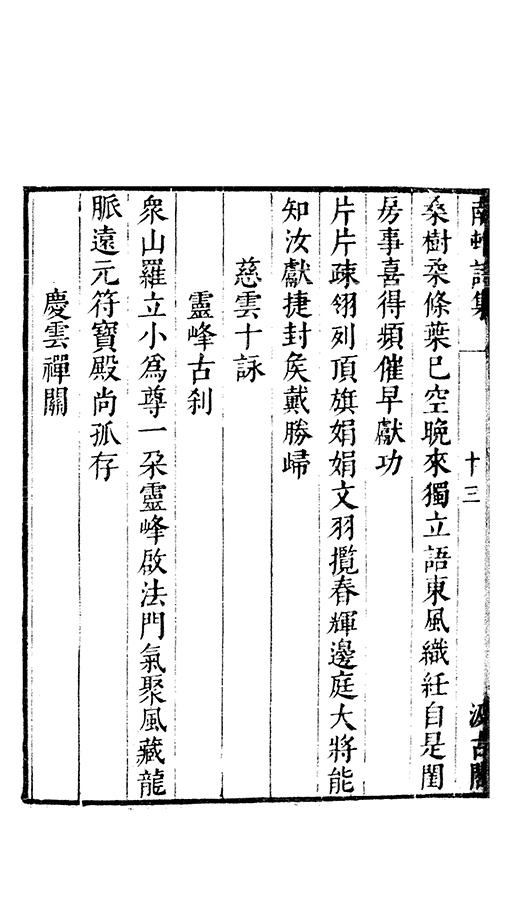 南村詩集 十三 汲古閣
桑樹桒條葉已空晚來獨立語東風織紝自是閨
房事喜得頻催早獻功
片片疎翎列頂旗娟娟文羽攬春輝邊庭大將能
知汝獻捷封矦戴勝歸
慈雲十詠
靈峰古刹
衆山羅立小爲尊一朶靈峰啟法門氣聚風藏龍
脈遠元符寶殿尚孤存
慶雲禪關